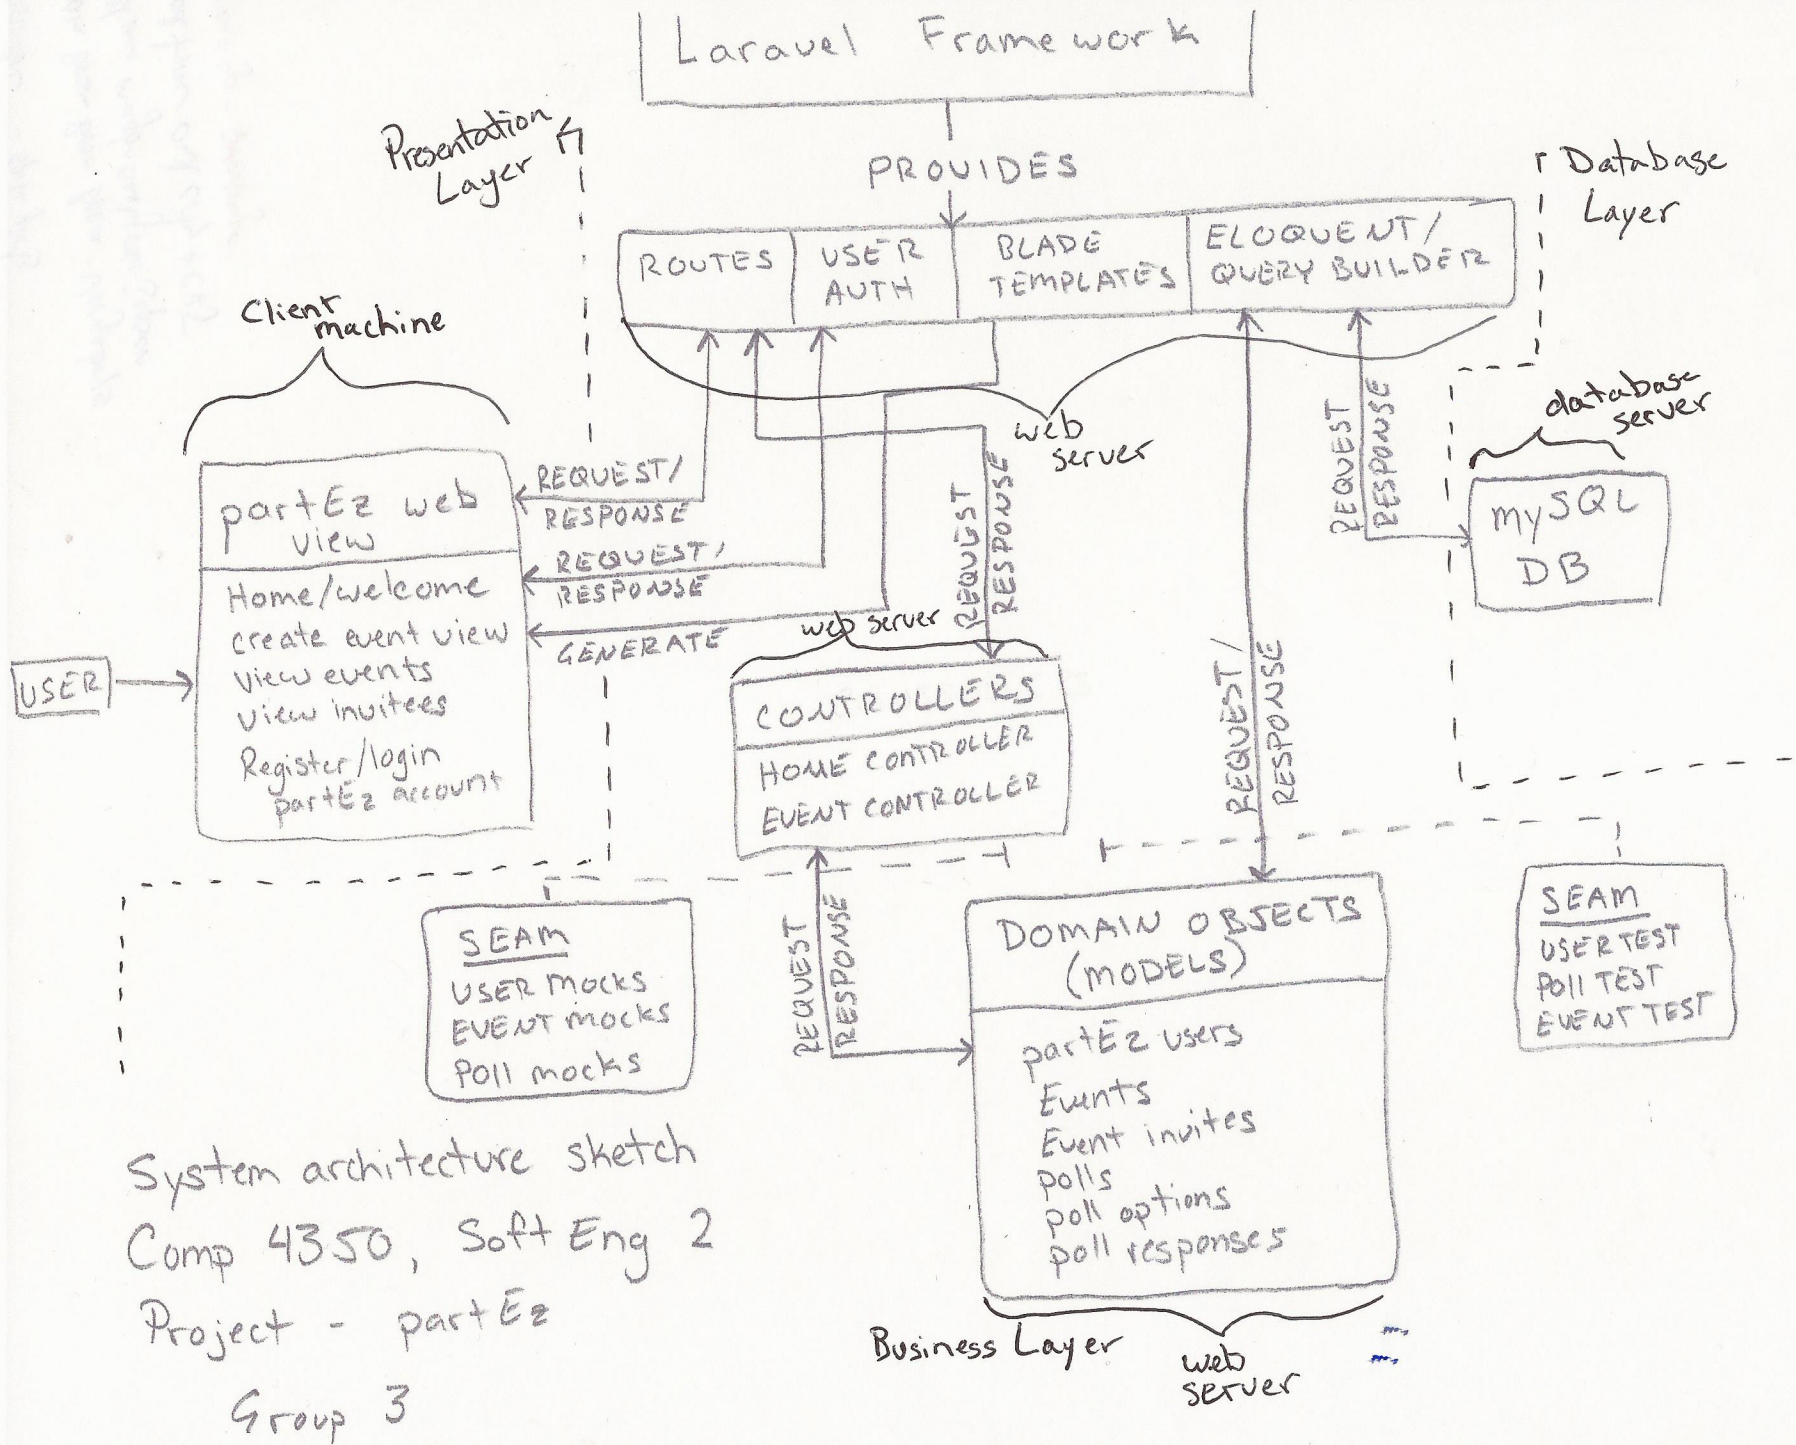 Laravel Framework
PROVIDES
Presentation
Layer
Database
Layer
ROUTES
USER
AUTH
BLADE
TEMPLATES
ELOQUENT/
QUERY BUILDER
Client
machine
web
server
database
server
REQUEST
RESPONSE
mySQL
DB
partEz web
view
Home/welcome
create event view
view events
view invitees
Register/login
partEz account
USER
REQUEST/
RESPONSE
REQUEST/
RESPONSE
GENERATE
REQUEST
RESPONSE
web server
CONTROLLERS
HOME CONTROLLER
EVENT CONTROLLER
REQUEST/
RESPONSE
SEAM
USER MOCKS
EVENT MOCKS
Poll mocks
REQUEST
RESPONSE
DOMAIN OBJECTS
(MODELS)
partEz users
Events
Event invites
polls
poll options
poll responses
SEAM
USER TEST
Poll TEST
EVENT TEST
Business Layer
web
server
System architecture sketch
Comp 4350, Soft Eng 2
Project - partEz
Group 3